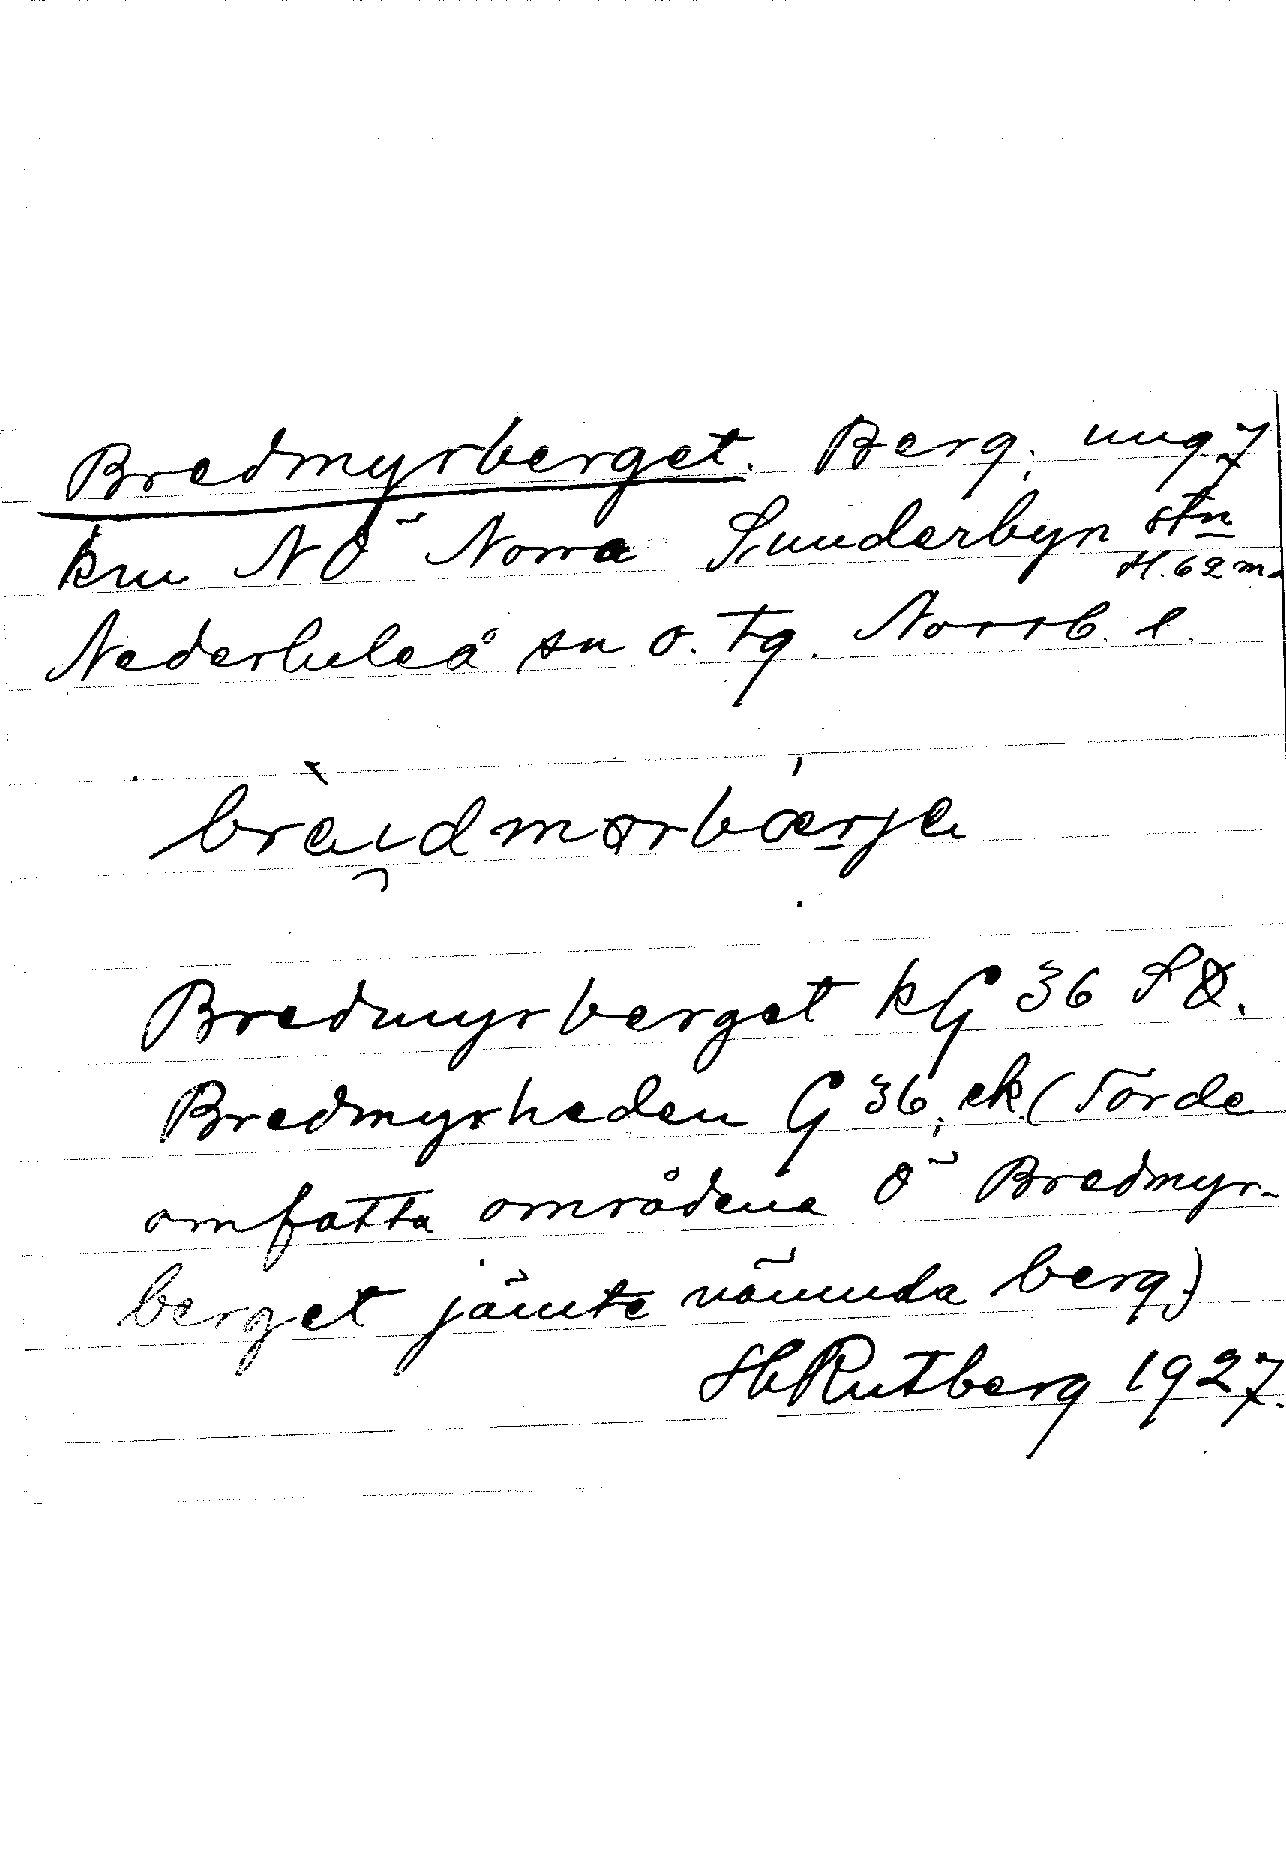 Bredmyrberget. Berg, ung 7
km NÖ Norra Sunderbyn stn
H. 62 m.
Nederluleå sn o. tg. Norrb. l.
Bredmyrberget kG 36 SÖ.
Bredmyrheden G 36, ek (Torde
omfatta områdena Ö Bredmyr-
berget jämte nämnda berg)
H Rutberg 1927.